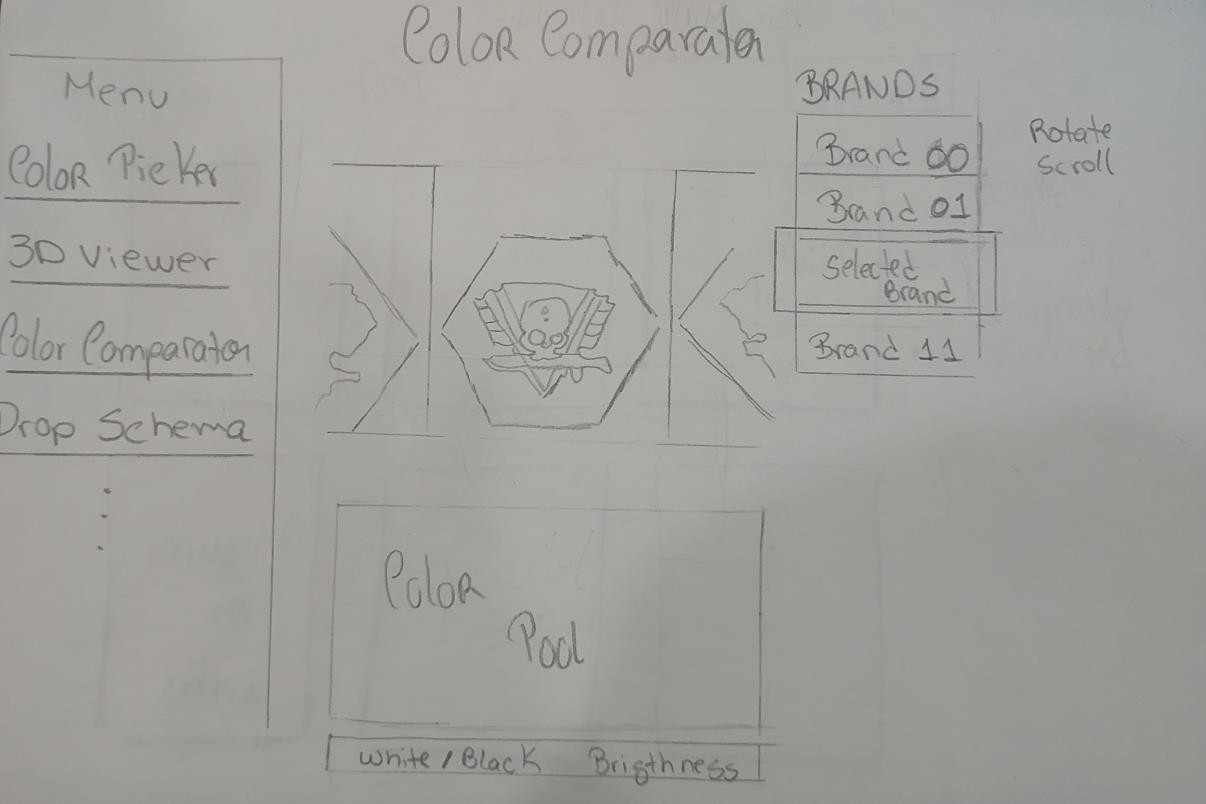 Color Comparator
Menu
Color Picker
3D Viewer
Color Comparator
Drop Schema
BRANDS
Brand 00
Brand 01
Selected
Brand
Brand 11
Rotate
Scroll
Color
Pool
White / Black Brigthness